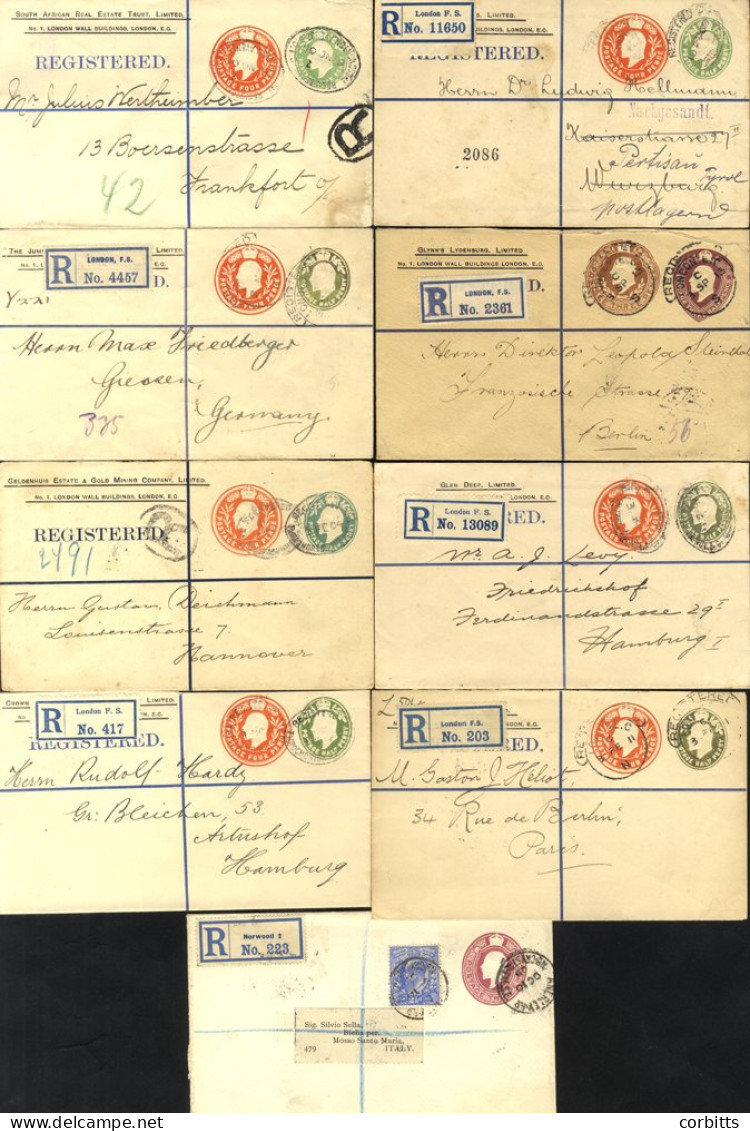 SOUTH AFRICAN REAL ESTATE TRUST, LIMITED.
No. 1, LONDON WALL BUILDINGS, LONDON, E.C.
REGISTERED.
Mr Julius Wertheimber
13 Boersenstrasse
Frankfort o/
42
R
London F.S.
No. 11650
LIMITED.
LONDON, E.C.
REGISTERED.
Herrn Dr Ludwig Hellmann
Nachgesandt.
Kaiserstrasse 27 II
2086
Pertisau
Tyrol
Wurzburg
postlagernd
THE
LIMITED.
R
LONDON, F.S.
No. 4457
D.
Herrn Max Friedberger
Giessen,
Germany
GLYNN'S LYDENBURG, LIMITED
No. 1, LONDON WALL BUILDINGS LONDON, E.C.
R
LONDON, F.S.
No. 2361
D.
Herrn Direktor Leopold Steinthal
Französische Strasse
Berlin
56
GELDENHUIS ESTATE & GOLD MINING COMPANY, LIMITED.
No. 1, LONDON WALL BUILDINGS, LONDON, E.C.
REGISTERED.
2491
Herrn Gustav Deichmann
Louisenstrasse 7
Hannover
GLEN DEEP, LIMITED.
LONDON, E.C.
R
London F.S.
No. 13089
RED.
Mr. A. J. Levy
Friedrichshof
Ferdinandstrasse 29 I
Hamburg I
CROWN
LIMITED.
R
London F.S.
No. 417
REGISTERED.
Herrn Rudolf Hardy
Gr: Bleichen, 53
Artushof
Hamburg
LIMITED.
LONDON, E.C.
R
London F.S.
No. 203
RED.
M. Gaston J. Héliot,
34 Rue de Berlin,
Paris.
R
Norwood 2
No. 223
Sig. Silvio Sella,
Biella per.
Mosso Santa Maria,
479 ITALY.
© corbitts